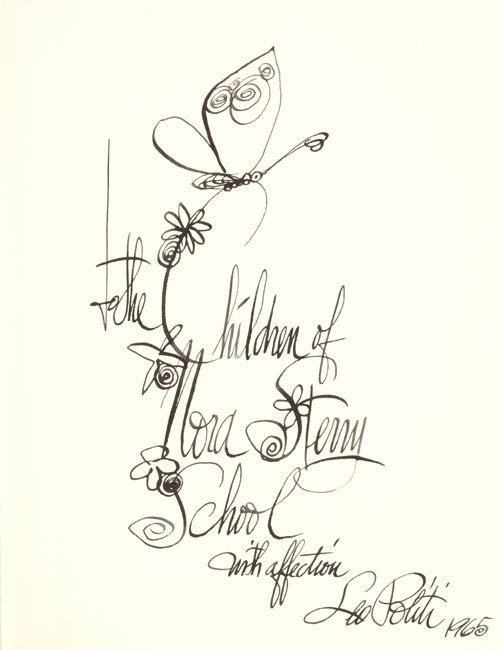 to the
Children of
Nora Sterry
School
with affection
Leo Politi
1965